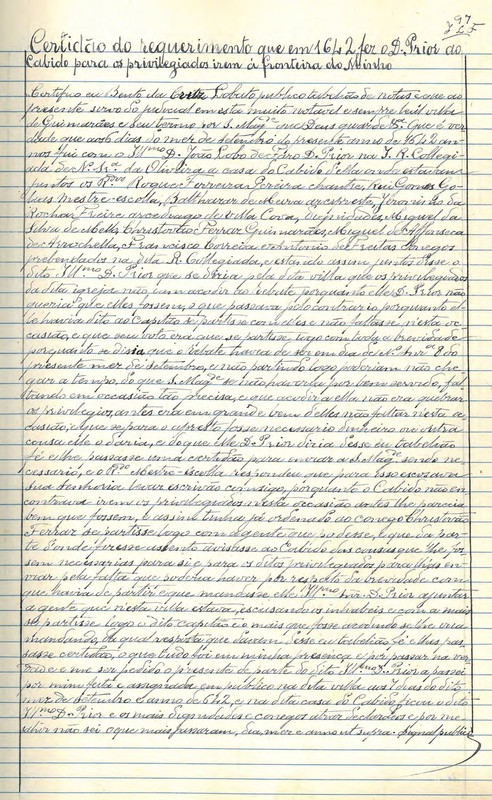 97
Certidão do requerimento que em 1642 fez o D. Prior ao
Cabido para os privilegiados irem á fronteira do Minho
Certifico eu Bento da Lobato publico tabelião de notas e que ao
presente servo do judicial em esta muito notavel e sempre leal villa
de Guimarães e seu termo por S. Mag.de que Deus guarde &.a Que é ver
dade que aos 6 dias do mez de setembro do presente anno de 1642 an-
nos fui com o Ill.mo D. João Lobo de Faro D. Prior na I. R. Collegi-
ada de N. Sr.a da Oliveira a casa do Cabido d'ella onde estavam
juntos os R.dos Roque Ferreira Pereira chantre, Rui Gomes Go-
lias mestre-escolla, Balthazar de Meira arcipreste, Jeronimo da
Rocha Freire arcediago de Villa Cova, dignidades, Miguel da
Silva de Mello, Christovão Ferraz Guimarães, Miguel da Affonseca
de Arrochella, Francisco Correia e Antonio de Freitas conegos
prebendados na dita R. Collegiada, e estando assim juntos disse o
dito Ill.mo D. Prior que se dizia pela dita villa que os privilegiados
da dita igreja não iam acodir ao rebate porquanto elle D. Prior não
queria que elles fossem, o que passava pelo contrario porquanto el-
le havia dito ao capitão se partisse com elles e não faltasse n'esta oc-
casião, e que seu voto era que se partisse logo com toda a brevidade
porquanto se dizia que o rebate havia de ser em dia de N. Sr.a 8 do
presente mez de setembro, e não partindo logo poderiam não che-
gar a tempo, do que S. Mag.de se não haveria por bem servido, fal-
tando em occasião tão precisa, e que acodir a ella não era quebrar
os privilegios, antes era em grande bem d'elles não faltar n'esta oc-
casião; e que se para o apresto fosse necessario dinheiro ou outra
cousa elle o daria, e do que elle D. Prior dizia désse eu tabelião
fé e lhe passasse uma certidão para enviar a S. Mag.de sendo ne-
cessario, e o R.do Mestre-Escolla respondeu que para isso escusava
sua senhoria levar escrivão comsigo, porquanto o Cabido não en-
contrava irem os privilegiados n'esta occasião antes lhe parecia
bem que fossem, e assim tinha já ordenado ao conego Christovão
Ferraz se partisse logo com a gente que podesse, e que da par-
te d'onde fizesse assento avisasse ao Cabido das cousas que lhe fos-
sem necessarias para si e para os ditos privilegiados para lhas en-
viar pela falta que poderia haver por respeito da brevidade com
que havia de partir e que mandasse elle Ill.mo Snr. D. Prior apontar
a gente que n'esta villa estava, escusando os inhabeis e com a mais
se partisse logo o dito capitão e o mais que fosse acodindo se lhe iria
mandando, da qual resposta que davam désse eu tabelião fé e lhes pas-
sasse certidão, o que tudo foi em minha presença e por passar na ver-
dade e me ser pedido a presente de parte do dito Ill.mo D. Prior a passei
por mim feita e assignada em publico na dita villa aos 7 dias do dito
mez de setembro e anno de 642, e na dita casa do Cabido ficou o dito
Ill.mo D. Prior e os mais dignidades e conegos atraz declarados e por me
abir não sei o que mais passaram, dia, mez e anno ut supra. Signal publico